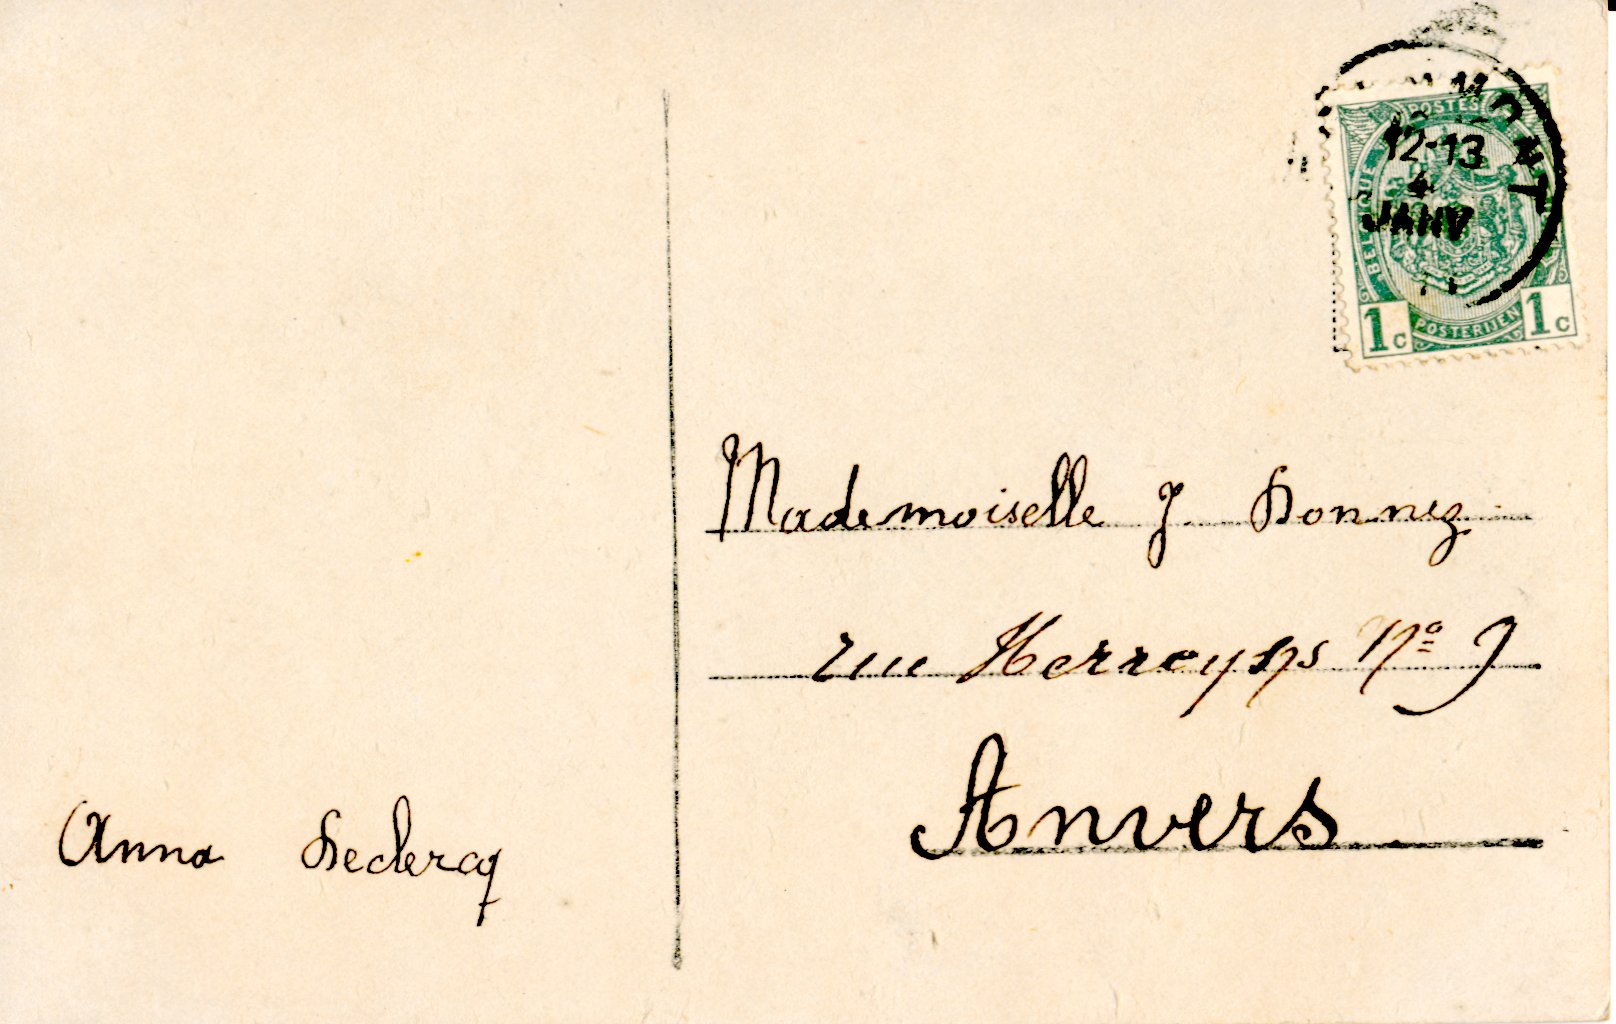 POSTES
BELGIQUE
12-13
4
JANV
MONT
1c POSTERIJEN 1c
Mademoiselle J. Donnez
rue Herreyns Nº 9
Anvers
Anna Declercq